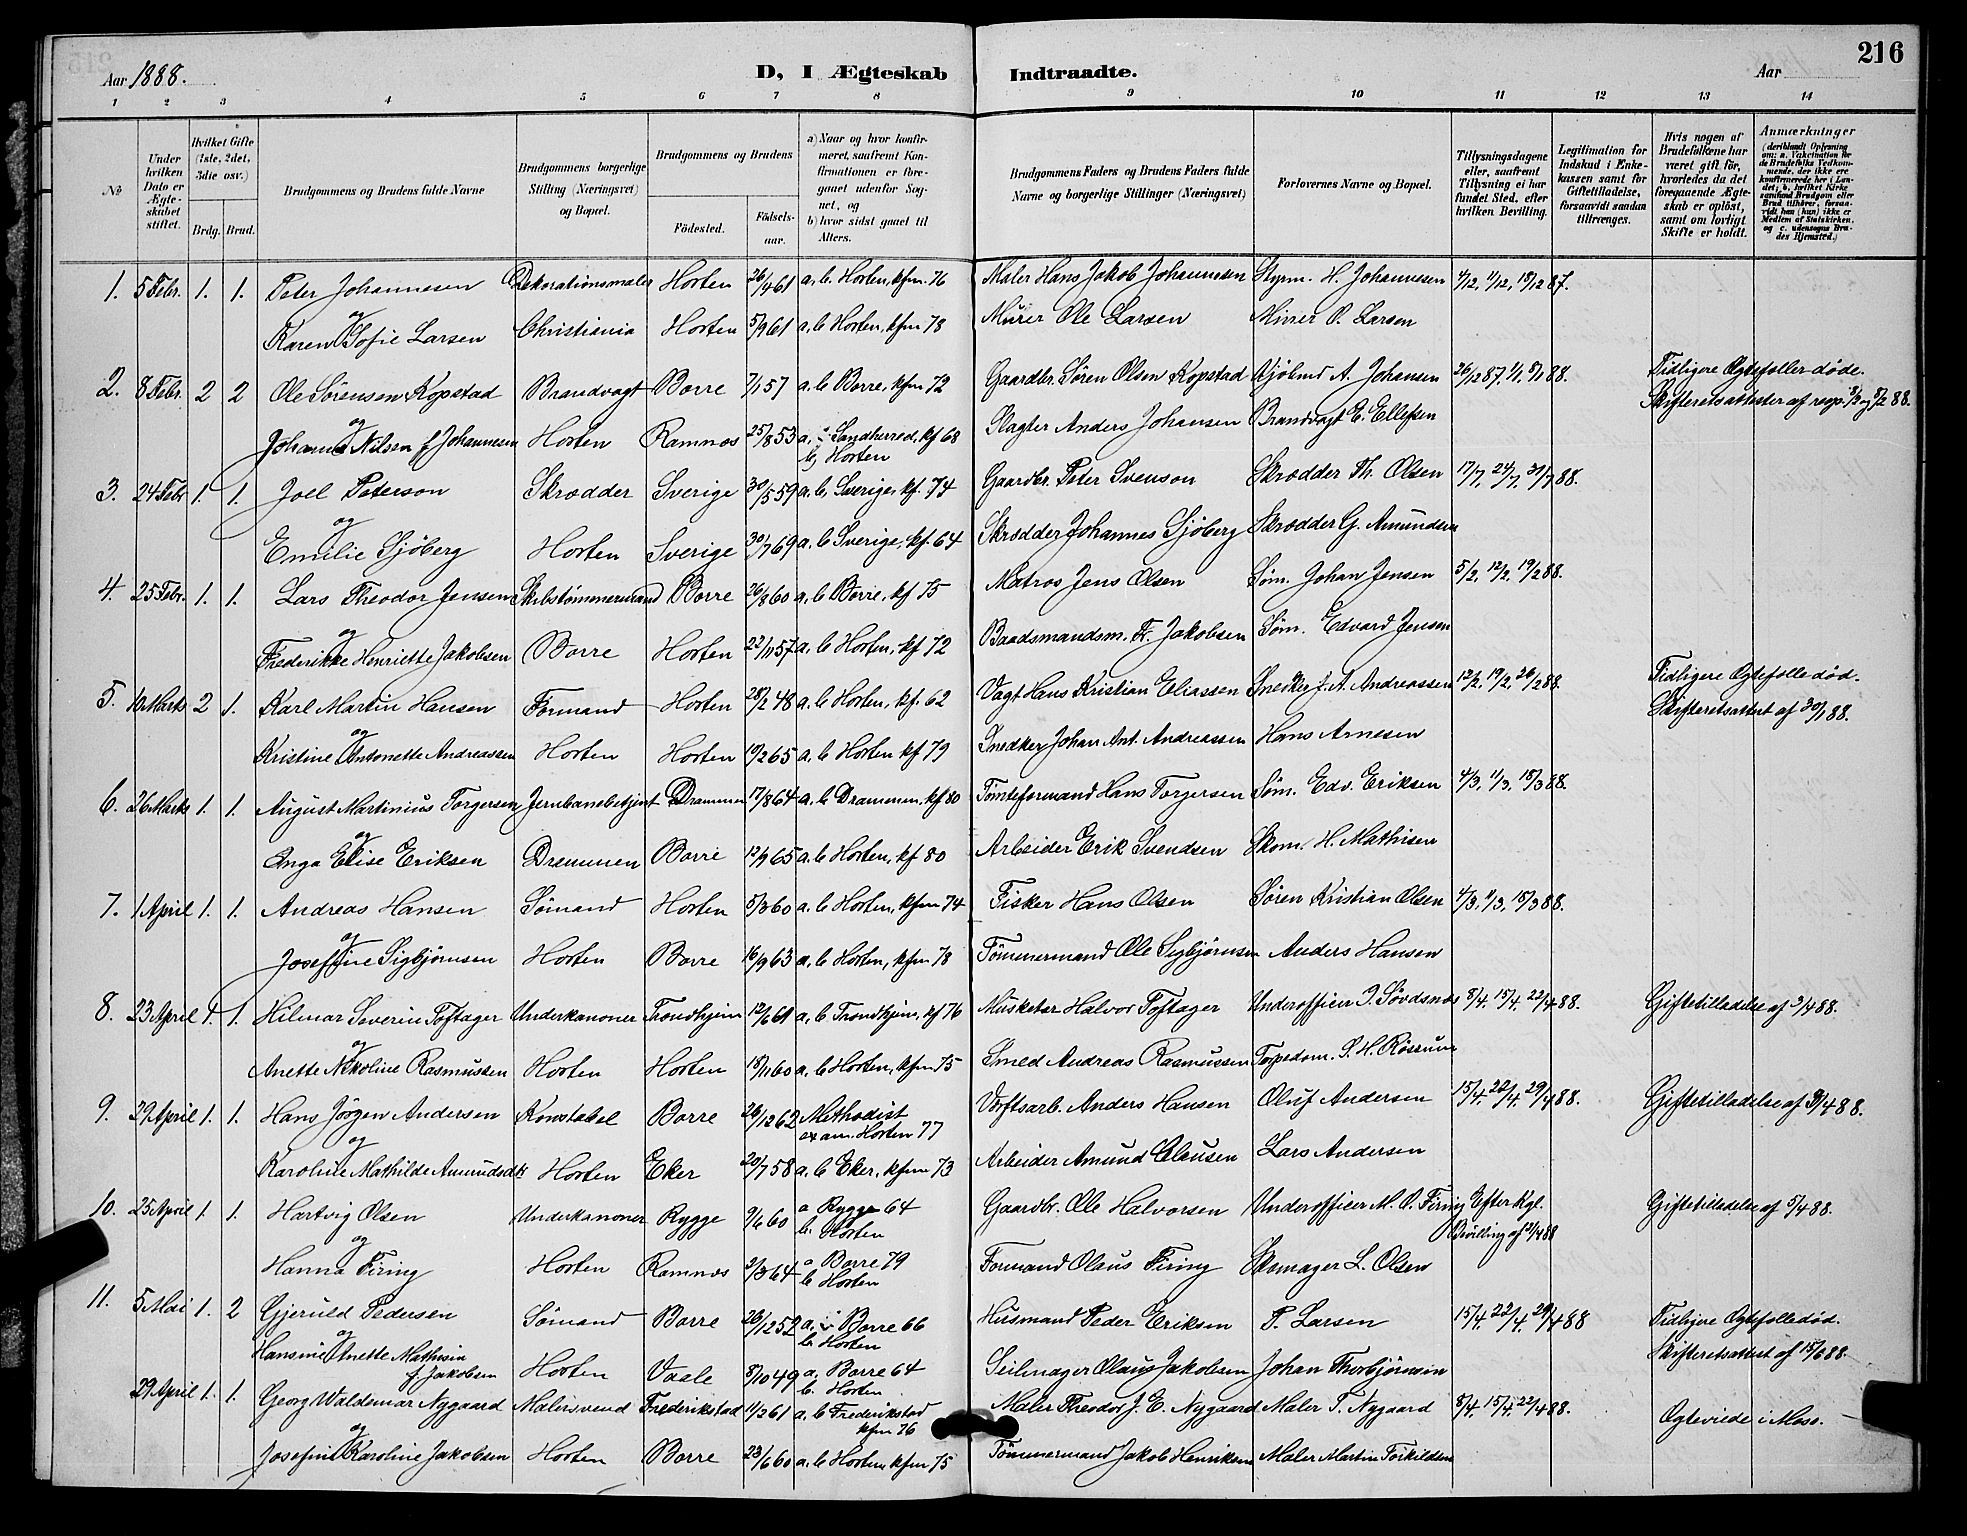 Aar 1888. D, I Ægteskab Indtraadte. Aar 216
1 2 3 4 5 6 7 8 9 10 11 12 13 14
No
Under hvilken Dato er Ægteskabet stiftet.
Hvilket Gifte (1ste, 2det, 3die osv.)
Brdg. Brud.
Brudgommens og Brudens fulde Navne
Brudgommens borgerlige Stilling (Næringsvei) og Bopæl.
Brudgommens og Brudens
Födested. Födselsaar.
a) Naar og hvor konfirmeret, saafremt Konfirmationen er foregaaet udenfor Sognet, og
b) hvor sidst gaaet til Alters.
Brudgommens Faders og Brudens Faders fulde Navne og borgerlige Stillinger (Næringsvei)
Forlovernes Navne og Bopæl.
Tillysningsdagene eller, saafremt Tillysning ei har fundet Sted, efter hvilken Bevilling.
Legitimation for Indskud i Ænkekassen samt for Giftetilladelse, forsaavidt saadan tiltrænges.
Hvis nogen af Brudefolkene har været gift för, hvorledes da det foregaaende Ægteskab er oplöst, samt om lovligt Skifte er holdt.
Anmærkninger (deriblandt Oplysning om: a. Vakcination for de Brudefolks Vedkommende, der ikke ere konfirmerede her i Landet; b. hvilket Kirkesamfund Brudgom eller Brud tilhører, forsaavidt han (hun) ikke er Medlem af Statskirken, og c. udensogns Brudes Hjemsted.)
1. 5 Febr. 1. 1. Peter Johannesen Dekorationsmaler Horten 26/4 61 a, b. Horten, kfm. 76 Maler Hans Jakob Johannesen Styrm. H. Johannesen 4/12, 11/12, 18/12 87.
og
Karen Sofie Larsen Christiania Horten 5/9 61 a, b Horten, kfm 78 Murer Ole Larsen Murer O. Larsen
2. 8 Febr. 2 2 Ole Sörensen Kopstad Brandvagt Borre 7/1 57 a. b Borre, kfm 72 Gaardbr. Søren Olsen Kopstad Kjøbmd A. Johansen 26/12 87, 1/1, 8/1 88. Tidligere Ægtefeller døde.
Skifteretsattester af resp. 3/2 og 8/2 88.
og
Johanne Nilsen f. Johannesen Horten Ramnæs 25/8 53 a. i Sandherred, kf 68 Slagter Anders Johansen Brandvagt E. Ellefsen
b, Horten
3. 24 Febr 1. 1. Joel Peterson Skrædder Sverige 30/5 59 a. b, Sverige, kf. 74 Gaardbr. Peter Svenson Skrædder Th. Olsen 17/7, 24/7, 31/7 88.
og
Emilie Sjöberg Horten Sverige 30/7 69 a. b Sverige, kf. 64 Skrædder Johannes Sjöberg Skrædder G. Amundsen
4. 25 Febr. 1. 1. Lars Theodor Jensen Skibstømmermand Borre 26/8 60 a, b Borre, kf 75 Matros Jens Olsen Søm. Johan Jensen 5/2, 12/2, 19/2 88.
og
Frederikke Henriette Jakobsen Borre Horten 22/11 57 a. b Horten, kf 72 Baadsmandsm. Fr. Jakobsen Søm. Edvard Jensen
5. 10 Marts 2 1. Karl Martin Hansen Formand Horten 28/2 48 a. b Horten, kf. 62 Vagt Hans Kristian Eliassen Snedker J. A. Andreassen 12/2, 19/2, 26/2 88. Tidligere Ægtefelle død.
Skifteretsattest af 30/1 88.
og
Kristine Antonette Andreassen Horten Horten 19/2 65 a, b Horten kf 79 Snedker Johan Ant. Andreassen Hans Arnesen
6. 26 Marts 1. 1. August Martinius Torgersen Jernbanebetjent Drammen 17/8 64 a. b Drammen, kf 80 Tomteformand Hans Torgersen Søm. Edv. Eriksen 4/3, 11/3, 18/3 88.
og
Inga Elise Eriksen Drammen Borre 12/9 65 a. b Horten, kf 80 Arbeider Erik Svendsen Skom. H. Mathisen
7. 1 April 1. 1. Andreas Hansen Sömand Horten 5/3 60 a. b Horten, kfm 74 Fisker Hans Olsen Sören Kristian Olsen 4/3, 11/3, 18/3 88.
og
Josefine Sigbjørnsen Horten Borre 16/9 63 a, b Horten, kfm 78 Tömmermand Ole Sigbjørnsen Anders Hansen
8. 23 April 1. 1. Hilmar Severin Toftager Underkanoner Trondhjem 12/6 61 a, b Trondhjem, kf 76 Musketer Halvor Toftager Underofficer 8/4, 15/4, 22/4 88. Giftetilladelse af 3/4 88.
og
Anette Nikoline Rasmussen Horten Horten 18/11 60 a. b Horten, kfm 75 Smed Andreas Rasmussen Torpedom. S. H. Røssum
9. 29 April 1. 1. Hans Jörgen Andersen Konstabel Borre 26/12 62 Methodist Værftsarb. Anders Hansen Oluf Andersen 15/4, 22/4, 29/4 88. Giftetilladelse af 9/4 88.
exam. Horten 77
og
Karoline Mathilde Amundsdtr Horten Eker 20/7 58 a. b Eker, kfm 73 Arbeider Amund Clausen Lars Andersen
10. 25 April 1. 1. Hartvig Olsen Underkanoner Rygge 9/6 60 a Rygge 64 Gaardbr. Ole Halvorsen Underofficer M. O. Firing Efter Kgl. Giftetilladelse af 5/4 88.
b. Horten Bevilling af 21/4 88
og
Hanna Firing Horten Ramnæs 2/3 64 a Borre 79 Formand Olaus Firing Skomager L. Olsen
b Horten
11. 5 Mai 1. 2 Gjeruld Pedersen Sømand Borre 26/12 52 a. i Borre 66 Husmand Peder Eriksen P. Larsen 15/4, 22/4, 29/4 88 Tidligere Ægtefelle død.
b. Horten Skifteretsattest af 15/6 88.
og
Hansine Anette Mathisen
f Jakobsen Horten Vaale 8/10 49 a, Borre 64 Seilmager Olaus Jakobsen Johan Thorbjørnsen
b. Horten
29 April 1. 1. Georg Waldemar Nygaard Malersvend Frederikstad 11/2 61 a. b Frederikstad Maler Theodor J. E. Nygaard Maler T. Nygaard 8/4, 15/4, 22/4 88. Ægteviede i Moss.
kfm 76
og
Josefine Karoline Jakobsen Horten Borre 23/6 60 a. b Horten kfm 75 Tömmermand Jakob Henriksen Maler Martin Torkildsen